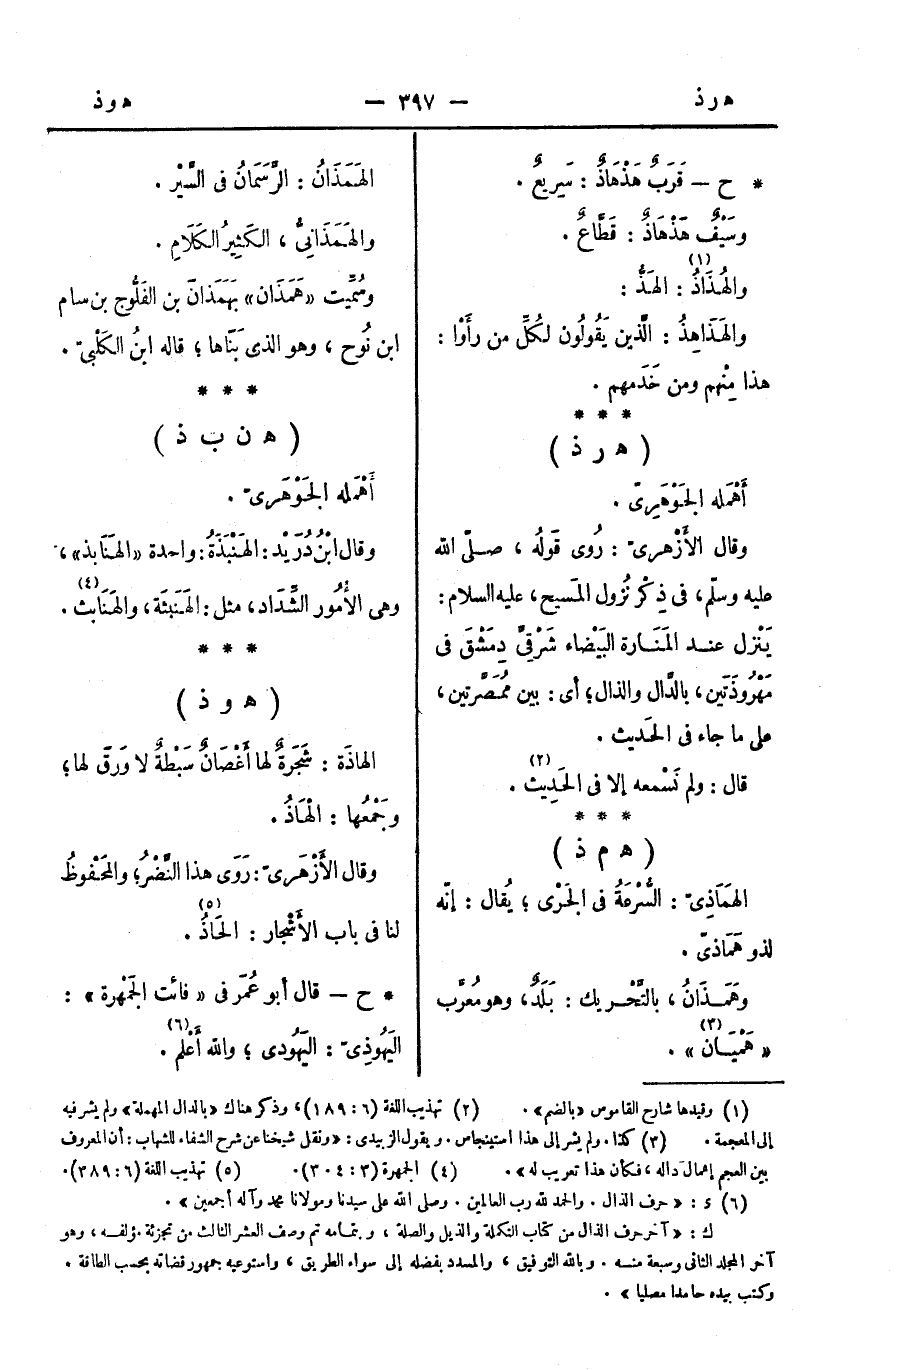 هرذ
— ٣٩٧ —
هوذ
* ح — قَرَبٌ هَذْهَاذٌ : سَرِيعٌ .
وسَيْفٌ هَذْهَاذٌ : قَطَّاعٌ .
والهُذَاذُ (١) : الهَذُّ :
والهَذَاهِذُ : الَّذين يَقُولُون لكُلِّ من رأَوْا :
هذا مِنْهم ومن خَدَمهم .
* * *
( ه ر ذ )
أَهْمَله الجَوْهَرِىّ .
وقال الأَزْهرىّ : رُوى قَولُه ، صلّى الله
عليه وسلّم، فى ذِكْر نُزُول المَسيح، عليه السلام:
يَنْزل عنـد المَنَـارة البَيْضاء شَرْقِىَّ دِمَشْقَ فى
مَهْرُوذَتَين، بالدَّال والذال؛ أى : بين مُمَصَّرتين،
على ما جاء فى الحَديث .
قال : ولم نَسْمعه إلا فى الحَدِيث (٢) .
* * *
( ه م ذ )
الهَمَاذِىّ : السُّرْعَةُ فى الجَرْى ؛ يُقال : إنّه
لذو هَمَاذىّ .
وهَمَـذَانُ ، بالتَّحْريك : بَلَدٌ، وهو مُعرَّب
« هَمَيَـان » (٣) .
الهَمَذَانُ : الرَّسَمَانُ فى السَّيْر .
والهَمَذَانِىُّ ، الكَثِيرُ الكَلَامِ .
وسُمِّيت «هَمَذَان» بَهَمَذَانَ بن الفَلُّوج بن سام
ابن نُوح ، وهو الذى بَنَاها ؛ قاله ابنُ الكَلْبىّ .
* * *
( ه ن ب ذ )
أَهْمَله الجَوْهَرىّ .
وقال ابْنُ دُرَيْد : الهَنْبَذَةُ : واحدة «الهَنَابذ»،
وهى الأُمُور الشَّدَاد، مثل : الهَنْبَثَة، والهَنَابث (٤) .
* * *
( ه و ذ )
الهاذَة : شَجَرَةٌ لها أَغْصَانٌ سَبْطَةٌ لا وَرَقَ لها؛
وجَمْعُها : الْهَاذُ .
وقال الأَزْهَرىّ : رَوَى هذا النَّضْرُ؛ والمَحْفوظُ
لنا فى باب الأَشْجار : الحَاذُ (٥) .
* ح — قال أبو عُمَر فى « فائت الجَمْهرة » :
اليَهُوذِىّ : اليَهُودى ؛ والله أَعْلم (٦) .
(١) وقيدها شارح القاموس «بالضم». (٢) تهذيب اللغة (٦ : ١٨٩)، وذكر هناك «بالدال المهملة» ولم يشر فيه
إلى المعجمة . (٣) كذا . ولم يشر إلى هذا استينجاس . ويقول الزبيدى : «ونقل شيخنا عن شرح الشفاء للشهاب : أن المعروف
بين العجم إهمال داله ، فكأن هذا تعريب له». (٤) الجمهرة (٣ : ٣٠٤). (٥) تهذيب اللغة (٦ : ٣٨٩).
(٦) s : « حرف الذال . والحمد لله رب العالمين . وصلى الله على سيدنا ومولانا محمد وآله أجمعين » .
ك : « آخر حرف الذال من كتاب التكملة والذيل والصلة ، وبتمامه تم وصف العشر الثالث من تجزئة مؤلفـه ، وهو
آخر المجلد الثانى وسبعة منـه . وبالله التوفيق ، والمسدد بفضله إلى سواء الطريق ، واستوعبه جمهور قضاته بحسب الطاقة .
وكتب بيده حامدا مصليا » .